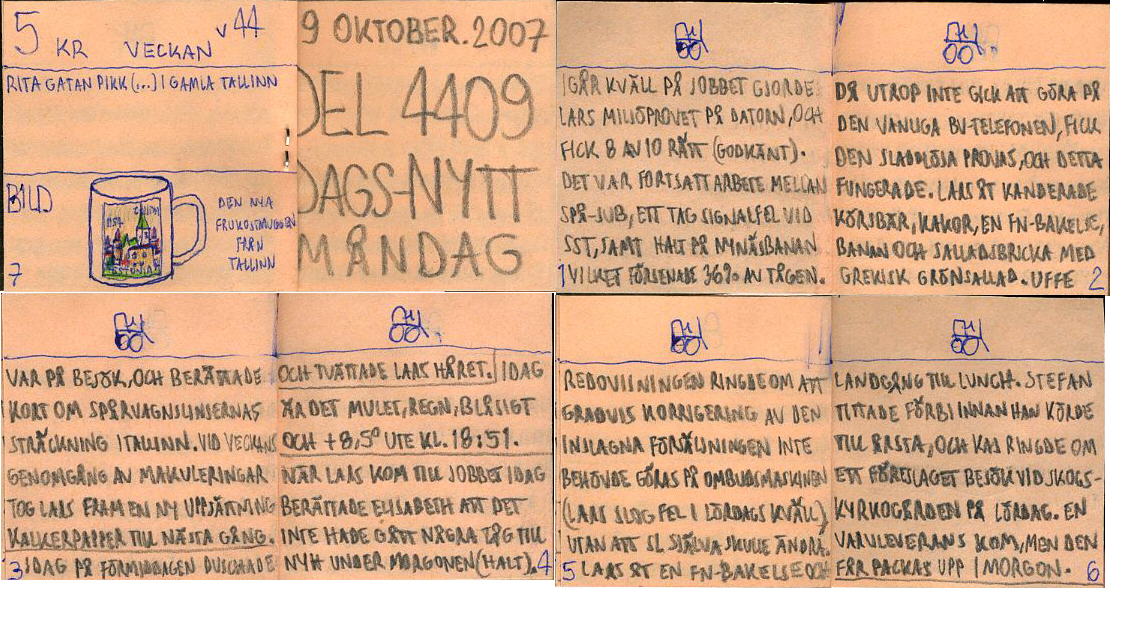 5 KR VECKAN v44
RITA GATAN PIKK (...) I GAMLA TALLINN
BILD
DEN NYA
FRUKOSTMUGGEN
FRÅN
TALLINN
ESTONIA
7
9 OKTOBER.2007
DEL 4409
DAGS-NYTT
MÅNDAG
IGÅR KVÄLL PÅ JOBBET GJORDE
LARS MILJÖPROVET PÅ DATORN, OCH
FICK 8 AV 10 RÄTT (GODKÄNT).
DET VAR FORTSATT ARBETE MELLAN
SPÅ-JUB, ETT TAG SIGNALFEL VID
SST, SAMT HALT PÅ NYNÄSBANAN
VILKET FÖRSENADE 36% AV TÅGEN.
1
DÅ UTROP INTE GICK ATT GÖRA PÅ
DEN VANLIGA BV-TELEFONEN, FICK
DEN SLADDLÖSA PROVAS, OCH DETTA
FUNGERADE. LARS ÅT KANDERADE
KÖRSBÄR, KAKOR, EN FN-BAKELSE,
BANAN OCH SALLADSBRICKA MED
GREKISK GRÖNSALLAD. UFFE
2
VAR PÅ BESÖK, OCH BERÄTTADE
KORT OM SPÅRVAGNSLINJERNAS
STRÄCKNING I TALLINN. VID VECKANS
GENOMGÅNG AV MAKULERINGAR
TOG LARS FRAM EN NY UPPSÄTTNING
KALKERPAPPER TILL NÄSTA GÅNG.
IDAG PÅ FÖRMIDDAGEN DUSCHADE
3
OCH TVÄTTADE LARS HÅRET. IDAG
ÄR DET MULET, REGN, BLÅSIGT
OCH +8,5° UTE KL. 18:51.
NÄR LARS KOM TILL JOBBET IDAG
BERÄTTADE ELISABETH ATT DET
INTE HADE GÅTT NÅGRA TÅG TILL
NYH UNDER MORGONEN (HALT).
4
REDOVISNINGEN RINGDE OM ATT
GRADVIS KORRIGERING AV DEN
INSLAGNA FÖRSÄLJNINGEN INTE
BEHÖVDE GÖRAS PÅ OMBUDSMASKINEN
(LARS SLOG FEL I LÖRDAGS KVÄLL),
UTAN ATT SL SJÄLVA SKULLE ÄNDRA.
LARS ÅT EN FN-BAKELSE OCH
5
LANDGÅNG TILL LUNCH. STEFAN
TITTADE FÖRBI INNAN HAN KÖRDE
TILL ÅRSTA, OCH KAJ RINGDE OM
ETT FÖRESLAGET BESÖK VID SKOGS-
KYRKOGÅRDEN PÅ LÖRDAG. EN
VARULEVERANS KOM, MEN DEN
FÅR PACKAS UPP I MORGON.
6